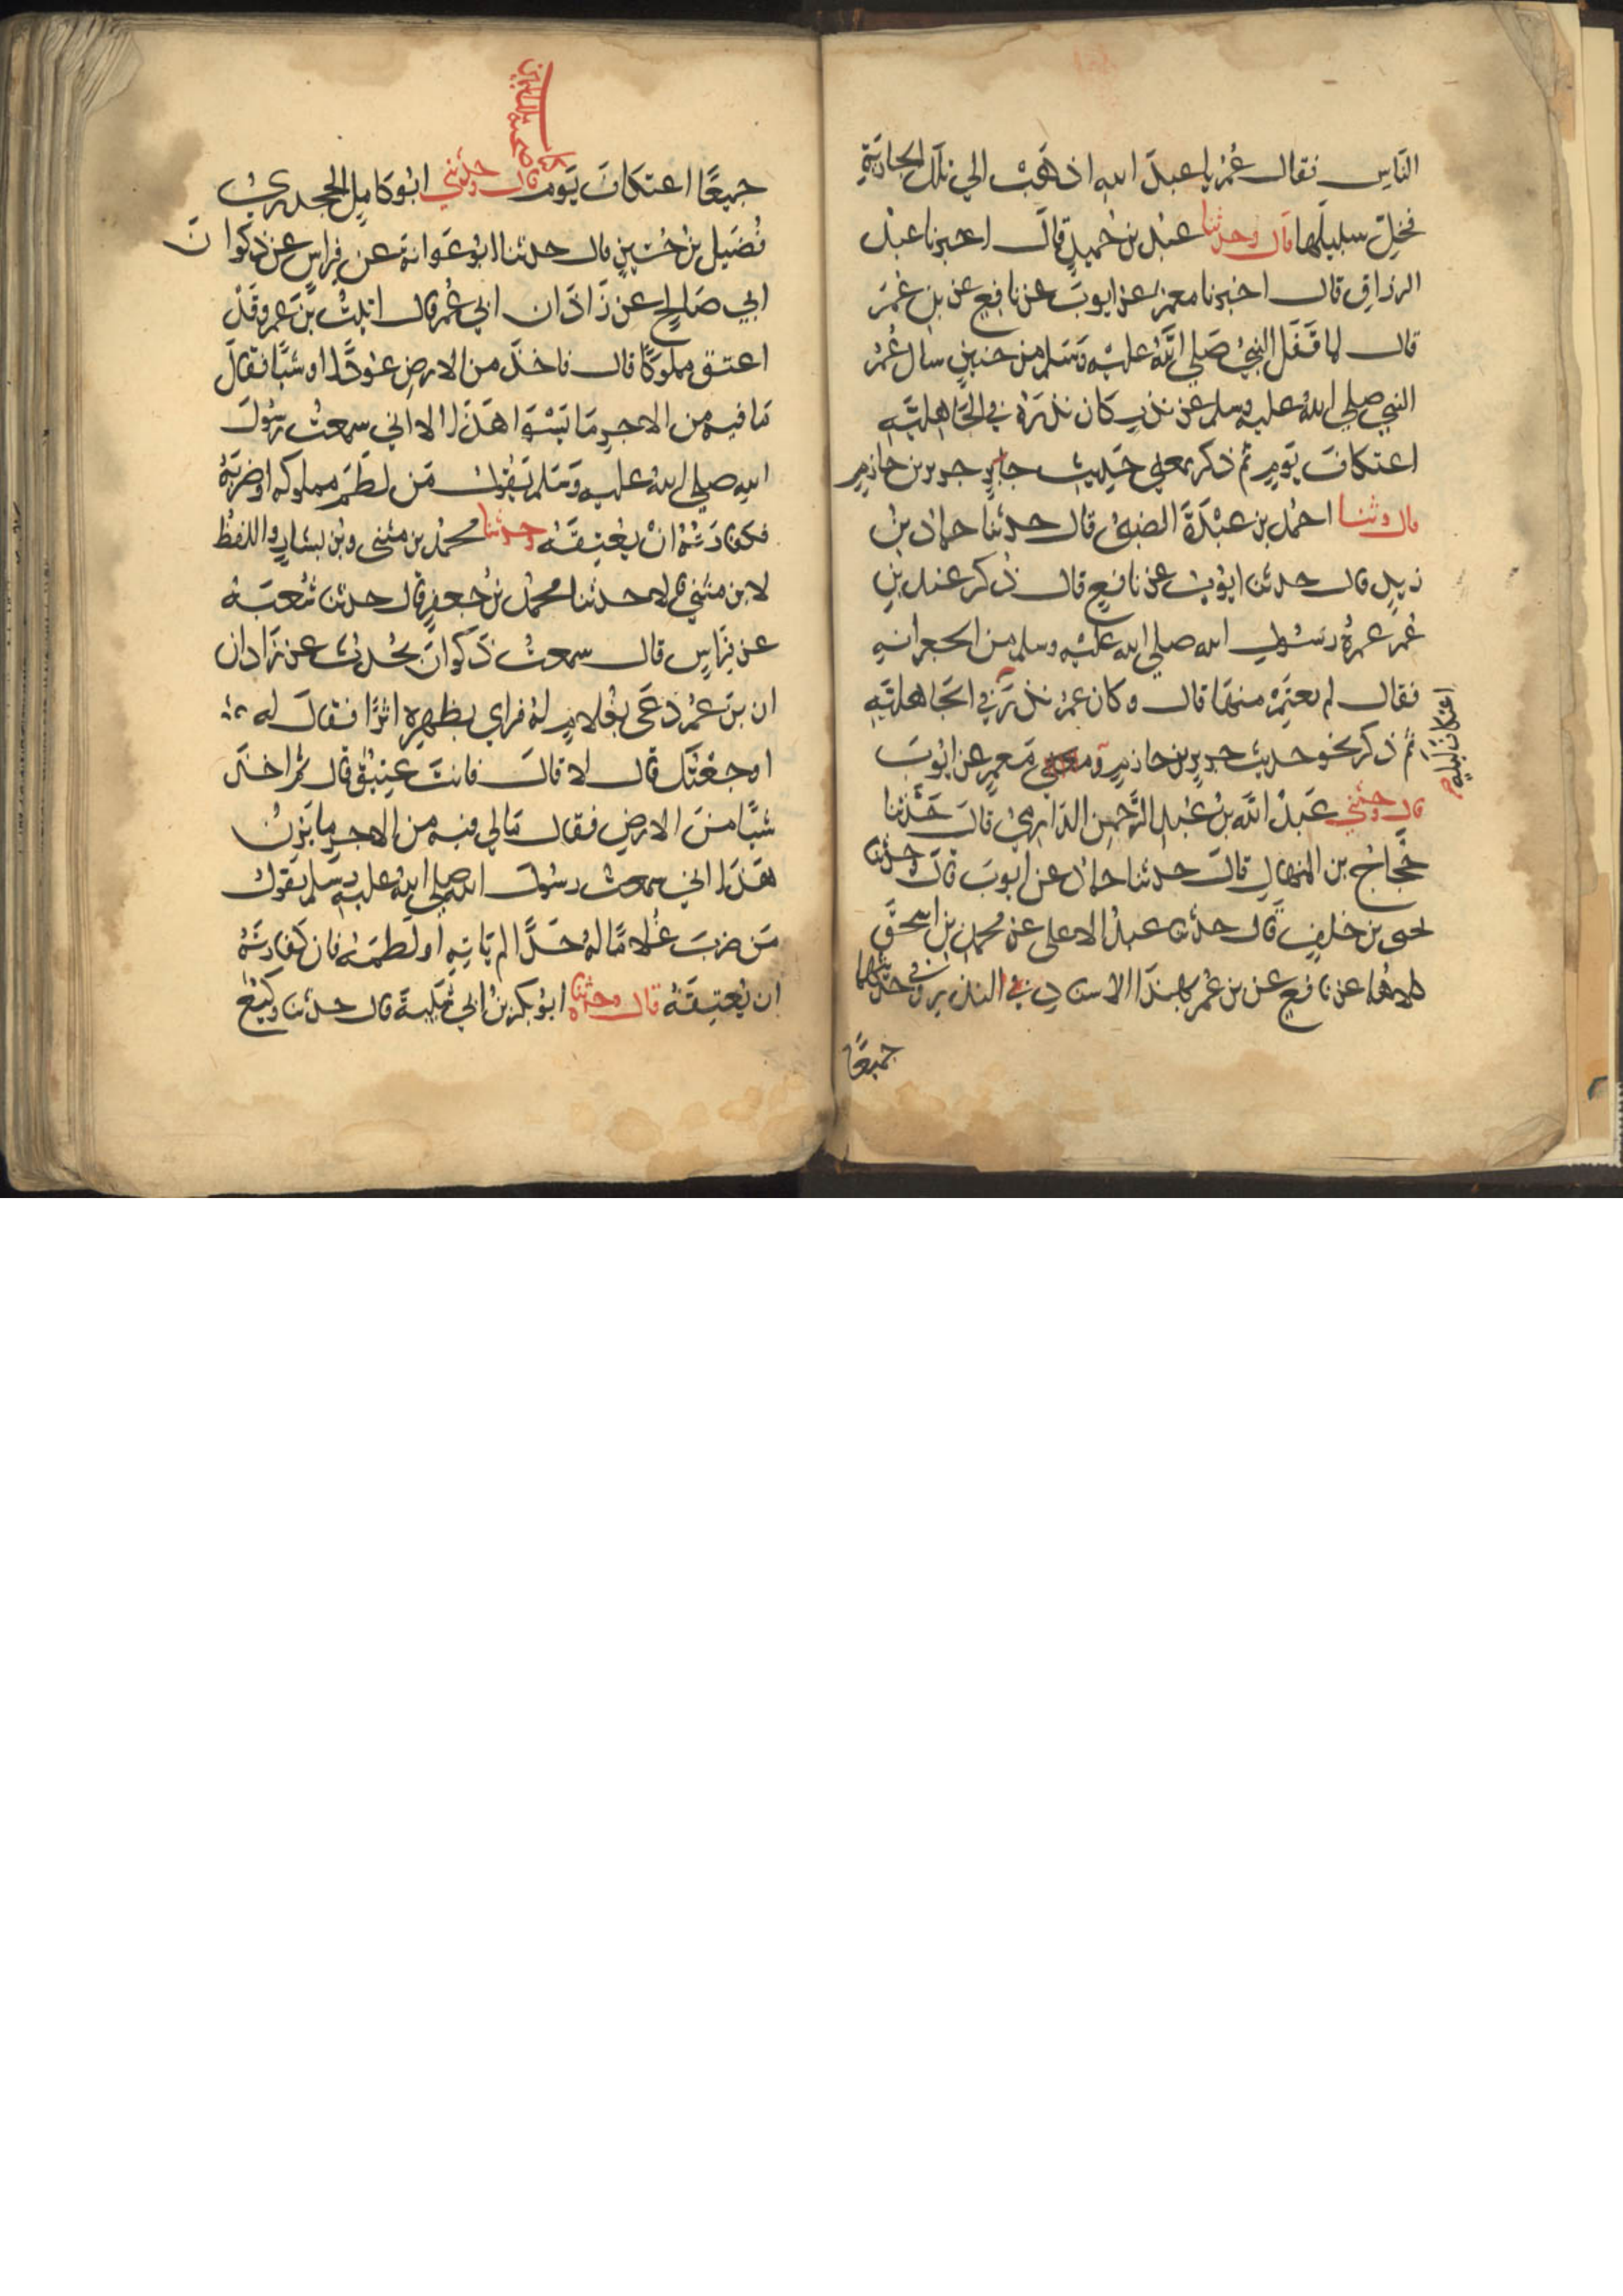 الناس فقال عمر يا عبد الله اذهب الي تلك الجارية
فخلي سبيلها قال وحدثنا عبد بن حميد قال اخبرنا عبد
الرزاق قال اخبرنا معمر عن ايوب عن نافع عن بن عمر
قال لما قفل النبي صلي الله عليه وسلم من حنين سال عمر
النبي صلي الله عليه وسلم عن نذر كان نذره في الجاهلية
اعتكاف يوم ثم ذكر بمعني حديث جرير بن حازم
قال وثنا احمد بن عبدة الضبي قال حدثنا حماد بن
زيد قال حدثنا ايوب عن نافع قال ذكر عند بن
عمر عمرة رسول الله صلي الله عليه وسلم من الجعرانه
فقال لم يعتمر منها قال وكان عمر نذر في الجاهلية
اعتكاف ليلة
ثم ذكر نحو حديث جرير بن حازم ومعمر عن ايوب
قال وحدثني عبد الله بن عبد الرحمن الدارمي قال حدثنا
حجاج بن المنهال قال حدثنا حماد عن ايوب قال وحدثنا
يحيى بن خلف قال حدثنا عبد الاعلى عن محمد بن اسحق
كلاهما عن نافع عن بن عمر بهذا الاسناد في النذر وفي حديثهما
جميعا
جميعا اعتكاف يوم قال وحدثني ابو كامل الجحدري
فضيل بن حسين قال حدثنا ابو عوانة عن فراس عن ذكوان
ابي صالح عن زاذان ابي عمر قال اتيت بن عمر وقد
اعتق مملوكا قال فاخذ من الارض عودا او شيا فقال
ما فيه من الاجر ما يسوا هذا الا اني سمعت رسول
الله صلي الله عليه وسلم يقول من لطم مملوكه او ضربه
فكفارته ان يعتقه وحدثنا محمد بن مثنى وبن بشار واللفظ
لابن مثني قالا حدثنا محمد بن جعفر قال حدثنا شعبة
عن فراس قال سمعت ذكوان يحدث عن زاذان
ان بن عمر دعى بغلام له فراي بظهره اثرا فقال له
اوجعتك قال لا قال فانت عتيق قال ثم اخذ
شيا من الارض فقال مالي فيه من الاجر ما يزن
هذا اني سمعت رسول الله صلي الله عليه وسلم يقول
من ضرب غلاما له حدا لم ياته او لطمه فان كفارته
ان يعتقه قال وحدثنا ابو بكر بن ابي شيبة قال حدثنا وكيع